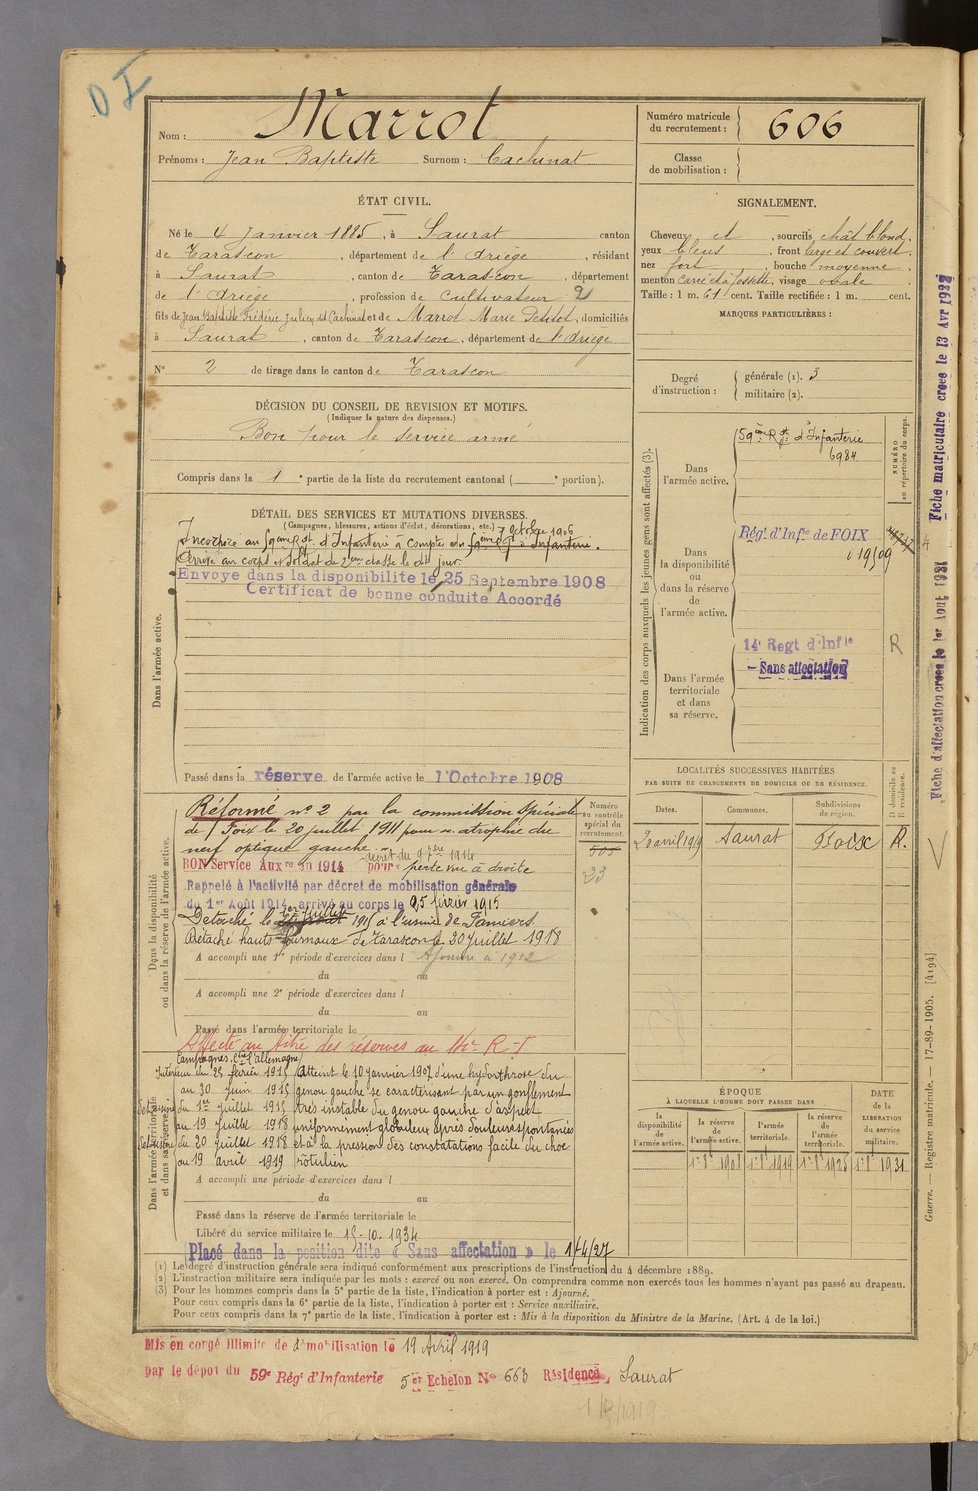 Nom : Marrot
Prénoms : Jean Baptiste Surnom : Cachinat
Numéro matricule du recrutement : 606
Classe de mobilisation :
ÉTAT CIVIL.
Né le 4 Janvier 1885, à Saurat canton
de Tarascon, département de l'Ariège, résidant
à Saurat, canton de Tarascon, département
de l'Ariège, profession de cultivateur 2
fils de Jean Baptiste Frédéric Julien dit Cachinat et de Marrot Marie, domiciliés
à Saurat, canton de Tarascon, département de l'Ariège
N° 2 de tirage dans le canton de Tarascon
SIGNALEMENT.
Cheveux et, sourcils chât blond,
yeux bleus, front large et couvert,
nez fort, bouche moyenne,
menton carré et à fossette, visage ovale.
Taille : 1 m. 61 cent. Taille rectifiée : 1 m. cent.
MARQUES PARTICULIÈRES :
Degré d'instruction : générale (1). 3
militaire (2).
DÉCISION DU CONSEIL DE REVISION ET MOTIFS.
(Indiquer la nature des dispenses.)
Bon pour le service armé
Compris dans la 1e partie de la liste du recrutement cantonal ( e portion).
DÉTAIL DES SERVICES ET MUTATIONS DIVERSES.
(Campagnes, blessures, actions d'éclat, décorations, etc.) 7 octobre 1906
Incorporé au 59ème Rgt d'Infanterie à compter du 59ème Rgt d'Infanterie.
Arrivé au corps et soldat de 2ème classe le dit jour.
Envoyé dans la disponibilité le 25 Septembre 1908
Certificat de bonne conduite Accordé
Dans l'armée active.
Passé dans la réserve de l'armée active le 1er Octobre 1908
Indication des corps auxquels les jeunes gens sont affectés (3).
Dans l'armée active.
59ème Rgt d'Infanterie
6984
NUMÉRO au répertoire du corps.
Dans la disponibilité ou dans la réserve de l'armée active.
Régt d'Infie de FOIX
Dans l'armée territoriale et dans sa réserve.
14e Regt d'Infie
R
Sans affectation
Dans la disponibilité ou dans la réserve de l'armée active.
Réformé n° 2 par la commission spéciale
de Foix le 20 juillet 1911 pour atrophie du
nerf optique gauche.
décret du 9 7bre 1914
BON Service Auxre en 1914 pour perte vue à droite
Rappelé à l'activité par décret de mobilisation générale
du 1er Août 1914, arrivé au corps le 25 février 1915
Détaché le 1er juillet 1915 à l'usine de Pamiers
Détaché hauts-fournaux de Tarascon le 30 Juillet 1918
A accompli une 1re période d'exercices dans l Ajourné à 1912
du au
A accompli une 2e période d'exercices dans l
du au
Passé dans l'armée territoriale le
Numéro au contrôle spécial du recrutement.
505
23
LOCALITÉS SUCCESSIVES HABITÉES
PAR SUITE DE CHANGEMENTS DE DOMICILE OU DE RÉSIDENCE.
Dates. Communes. Subdivisions de région. D domicile ou R résidence.
20 avril 1919 Saurat Foix R.
Affecté au titre des réserves au R-T
Dans l'armée territoriale et dans sa réserve.
Campagnes, Ctre l'Allemagne
Intérieur du 25 février 1915
au 30 Juin 1915
du 1er Juillet 1915
au 19 Juillet 1918
du 20 Juillet 1918
au 19 avril 1919
Atteint le 10 janvier 1907 d'une hydarthrose du
genou gauche se caractérisant par un gonflement
très instable du genou gauche d'aspect
uniformément globuleux après douleurs spontanées
et à la pression des constatations facile du choc
rotulien
A accompli une période d'exercices dans l
du au
Passé dans la réserve de l'armée territoriale le
Libéré du service militaire le 15-10-1934
Placé dans la position dite « Sans affectation » le 1/4/27
ÉPOQUE
À LAQUELLE L'HOMME DOIT PASSER DANS
la disponibilité de l'armée active. la réserve de l'armée active. l'armée territoriale. la réserve de l'armée territoriale.
DATE de la LIBÉRATION du service militaire.
1er 8bre 1908 1er 8bre 1919 1er 8bre 1925 1er 8bre 1931
(1) Le degré d'instruction générale sera indiqué conformément aux prescriptions de l'instruction du 4 décembre 1889.
(2) L'instruction militaire sera indiquée par les mots : exercé ou non exercé. On comprendra comme non exercés tous les hommes n'ayant pas passé au drapeau.
(3) Pour les hommes compris dans la 5e partie de la liste, l'indication à porter est : Ajourné.
Pour ceux compris dans la 6e partie de la liste, l'indication à porter est : Service auxiliaire.
Pour ceux compris dans la 7e partie de la liste, l'indication à porter est : Mis à la disposition du Ministre de la Marine. (Art. 4 de la loi.)
Mis en congé illimité de démobilisation le 19 Avril 1919
par le dépôt du 59e Régt d'Infanterie 5er Echelon N° 663 Résidence, Saurat
Fiche d'affectation créée le 1er Août 1931
Fiche matriculaire créée le 13 Avr 1932
Guerre. — Registre matricule. — 17-89-1905. [4194]